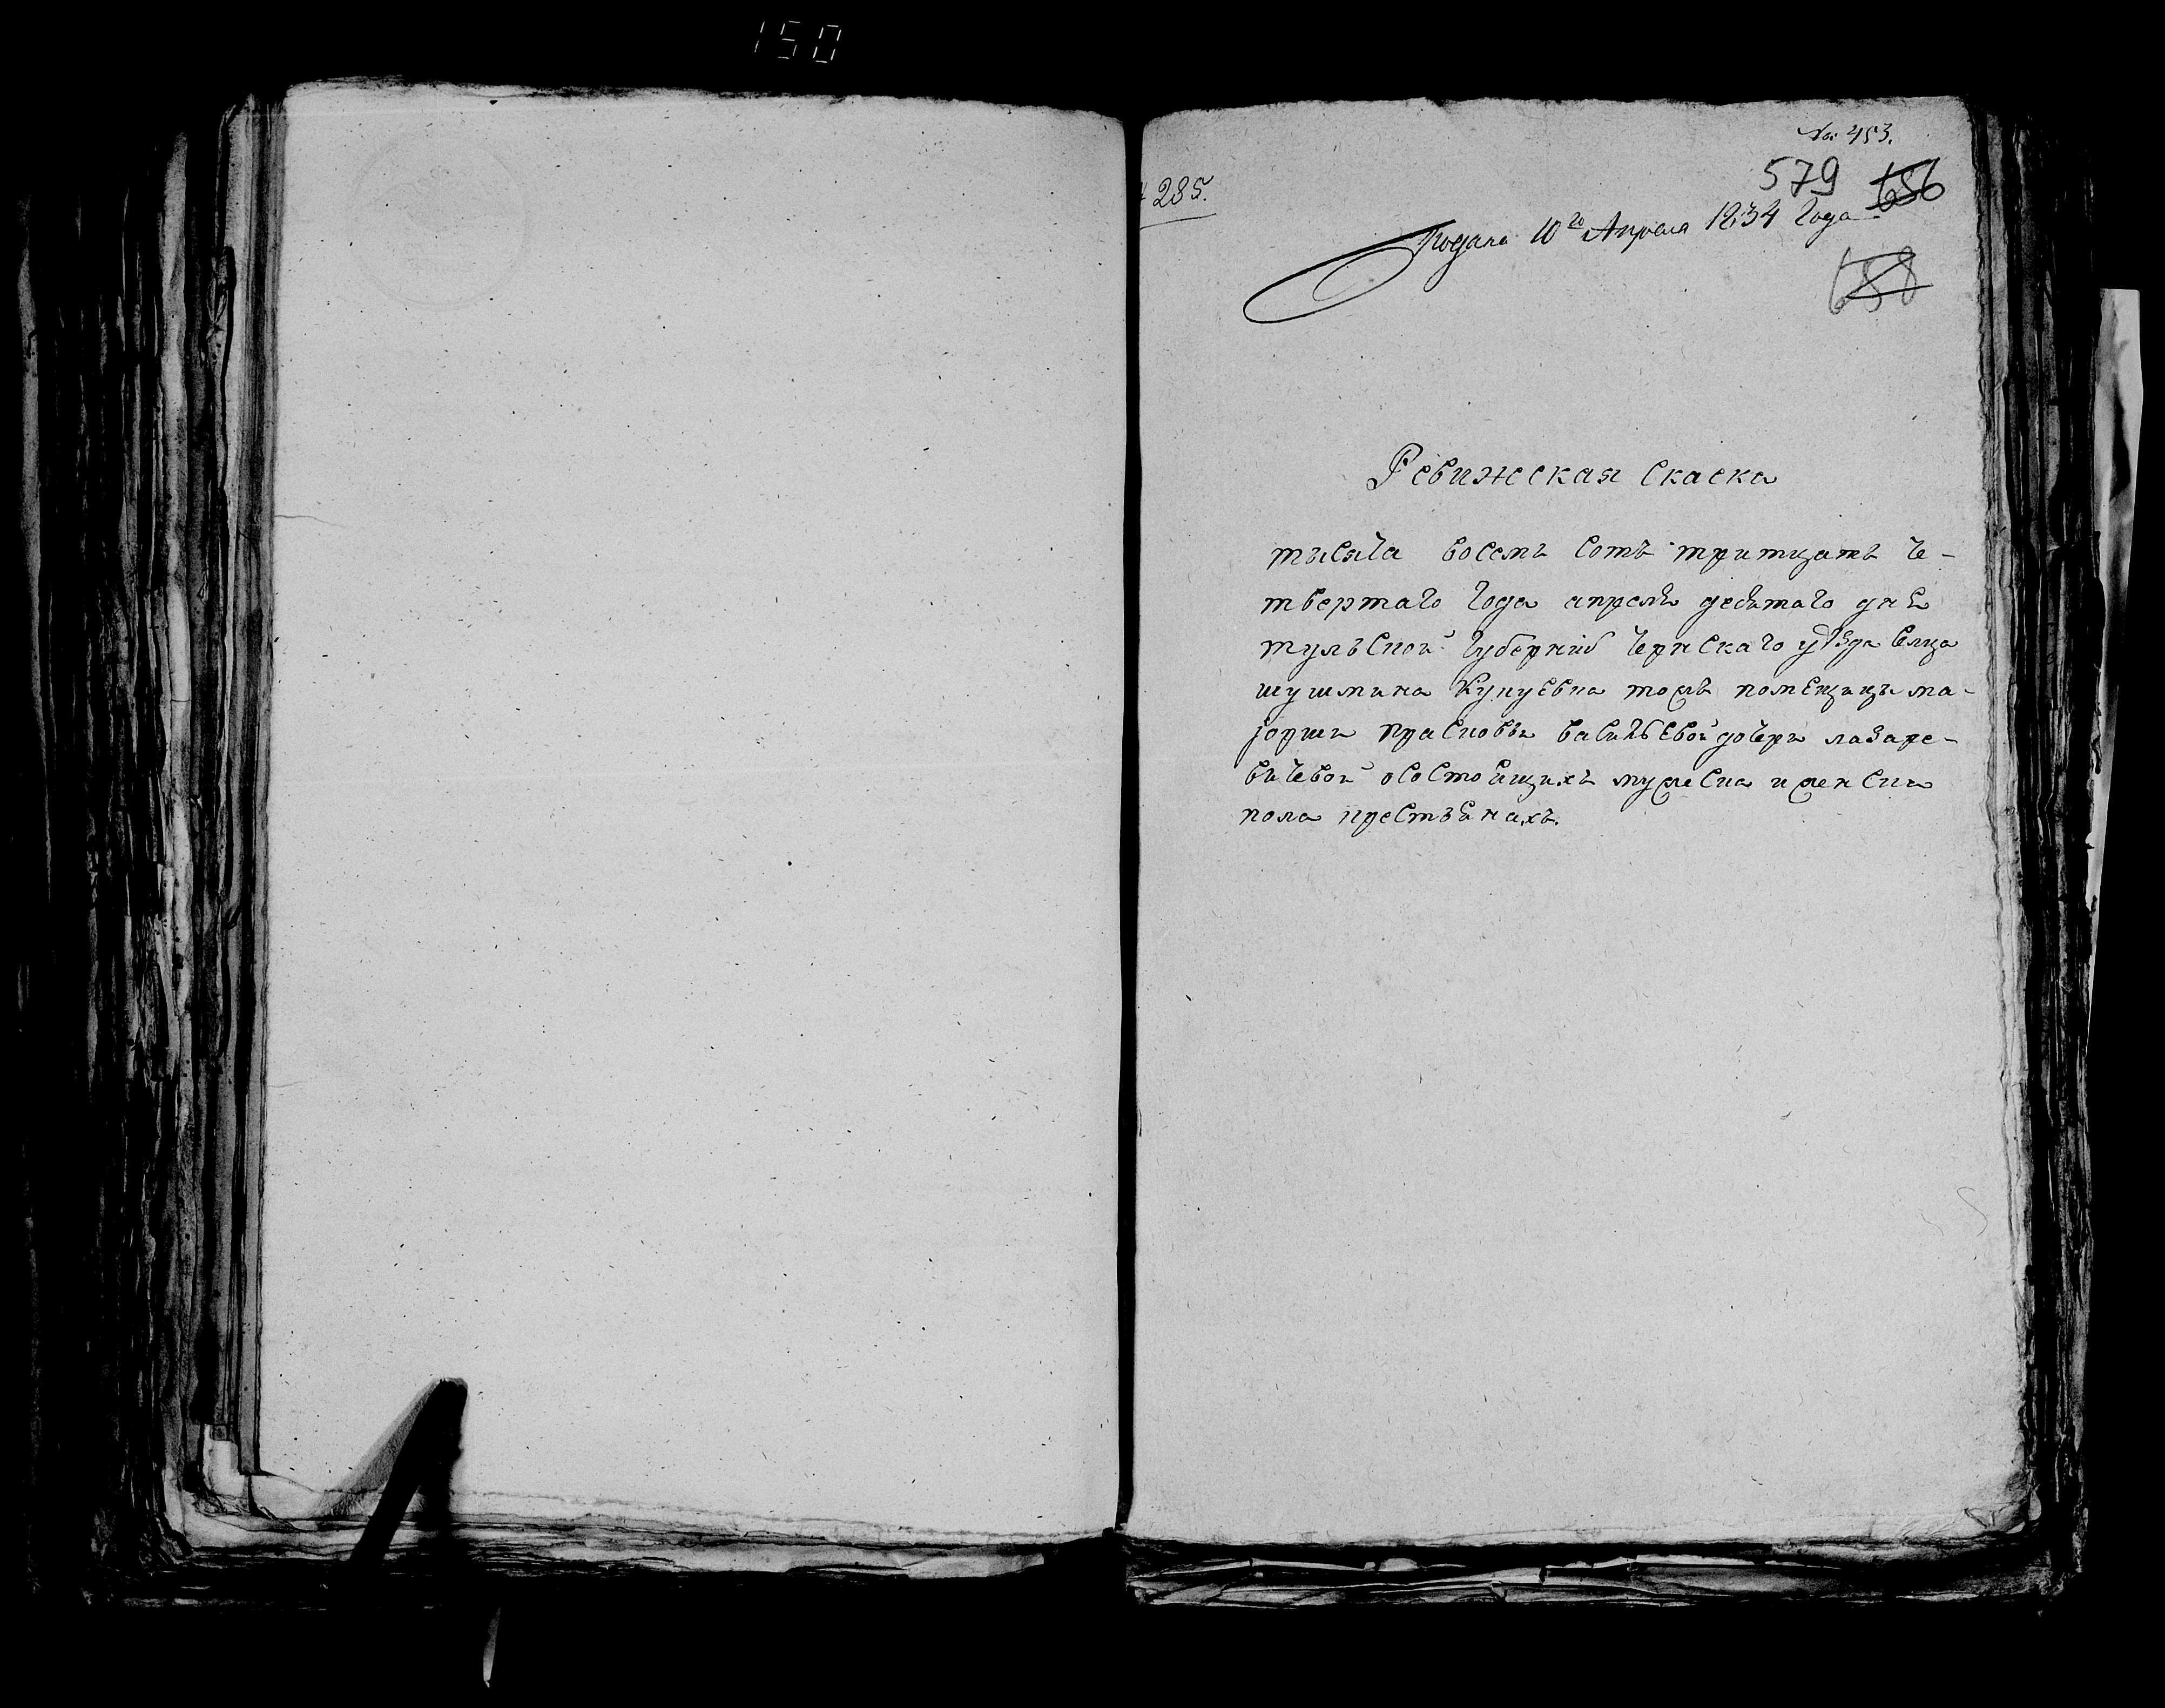 150
№ 453.
285.
579 656
Подана 10го Апреля 1834 Года
658
Ревижская скаска
тысяча восемь сотъ тритцать че-
твертаго года апреля десятаго дня
тульской губерніи чернскаго уѣзда сельца
шушмина тожъ помещицы ма-
іорши прасковьи васильевой дочери лазаре-
вичевой осостоящихъ мужеска и женска
пола крестьянахъ.